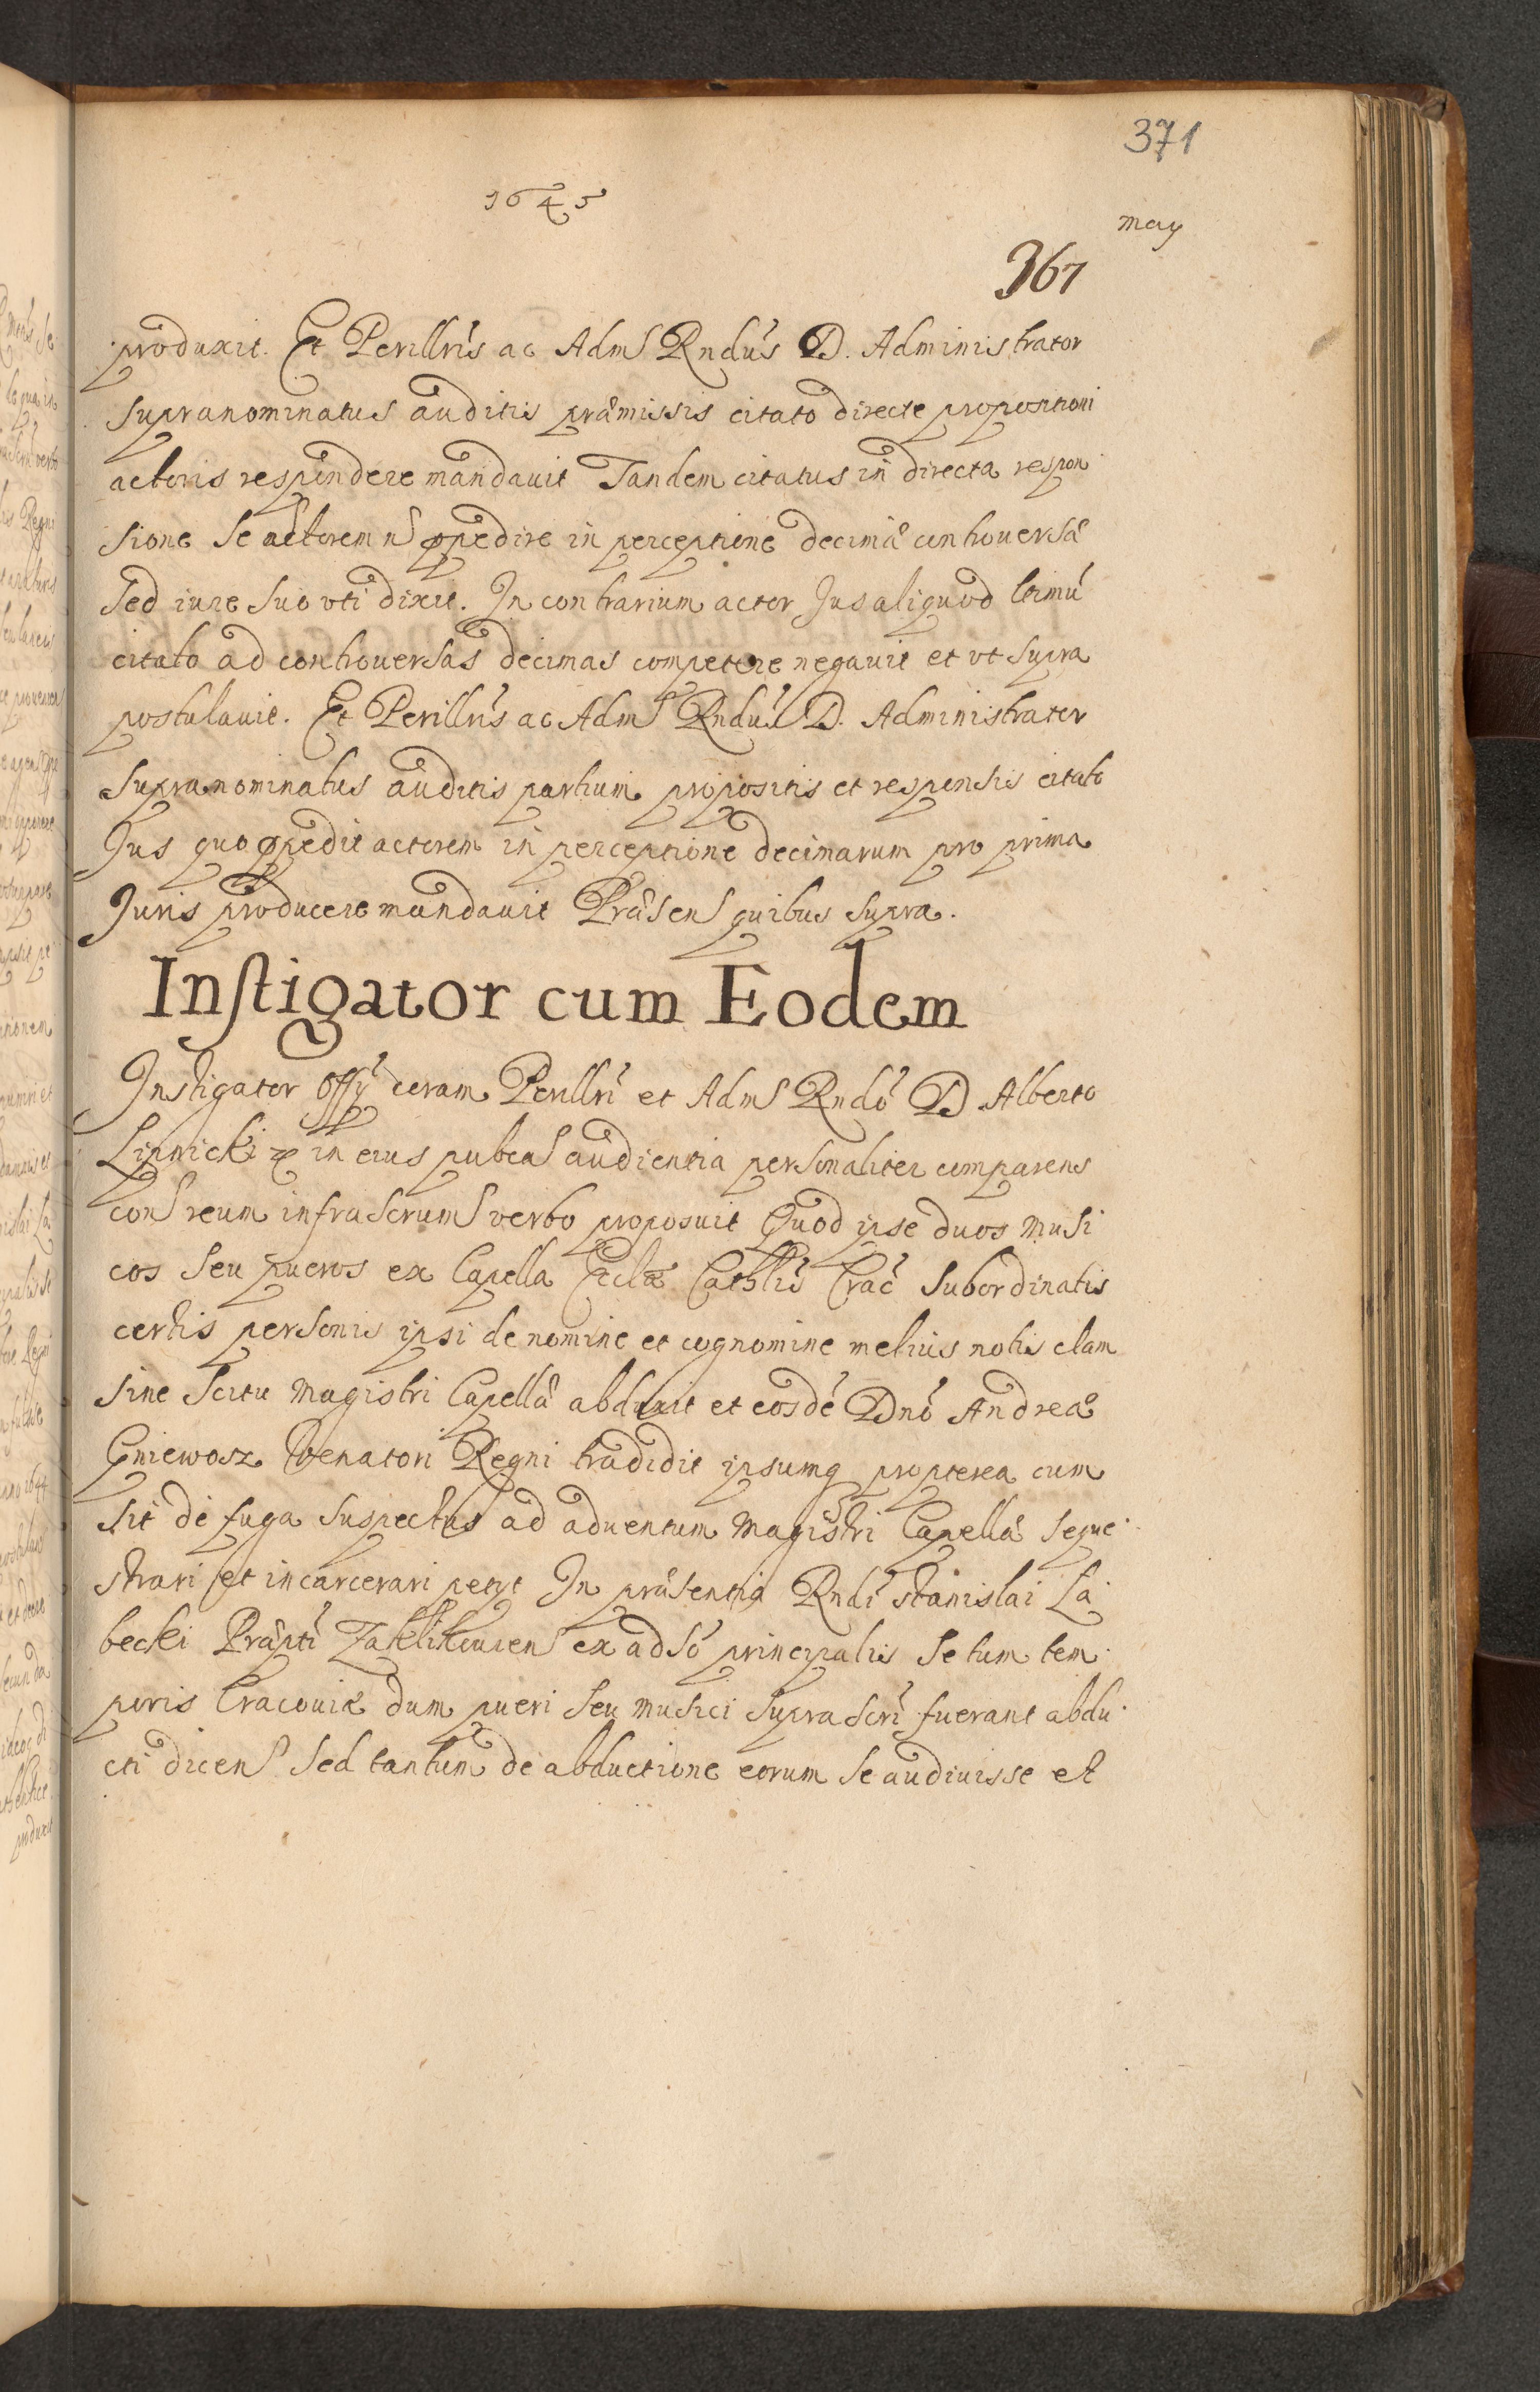 371
1645
may
367
produxit. Et Perillris ac Adm Rndus D. Administrator
supranominatus auditis præmissis citato directe propositioni
actoris respondere mandauit Tandem citatus in directa respon
sione se actorem n̄ impedire in perceptione decimæ controuersæ
sed iure suo vti dixit. In contrarium actor Jus aliquod ltimū
citato ad controuersas decimas competere negauit et vt supra
postulauit. Et Perillris ac Adm Rndus D. Administrator
supranominatus auditis partium propositis et responsis citato
Jus quo impedit actorem in perceptione decimarum pro prima
Juris producere mandauit Præsen quibus supra.
Instigator cum Eodem
Instigator Offy coram Perillri et Adm Rndo D Alberto
Lipnicki in eius pubca audientia personaliter comparens
con reum infrascrum verbo proposuit Quod ipse duos musi
cos seu pueros ex Capella Ecclæ Cathlis Crac subordinatis
certis personis ipsi de nomine et cognomine melius notis clam
sine scitu magistri Capellæ abduxit et eosdē Dno Andreæ
Gniewosz Venatori Regni tradidit ipsumq propterea cum
sit de fuga suspectus ad aduentum magistri Capellæ seque
strari et incarcerari petyt In præsentia Rndi stanislai La
becki Præpti Zaklikouien ex adso principalis se tum tem
poris Cracouiæ dum pueri seu musici suprascri fuerant abdu
cti dicen sed tantum de abductione eorum se audiuisse et